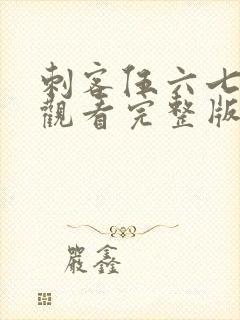 刺客伍六七
觀看完整版
嚴鑫